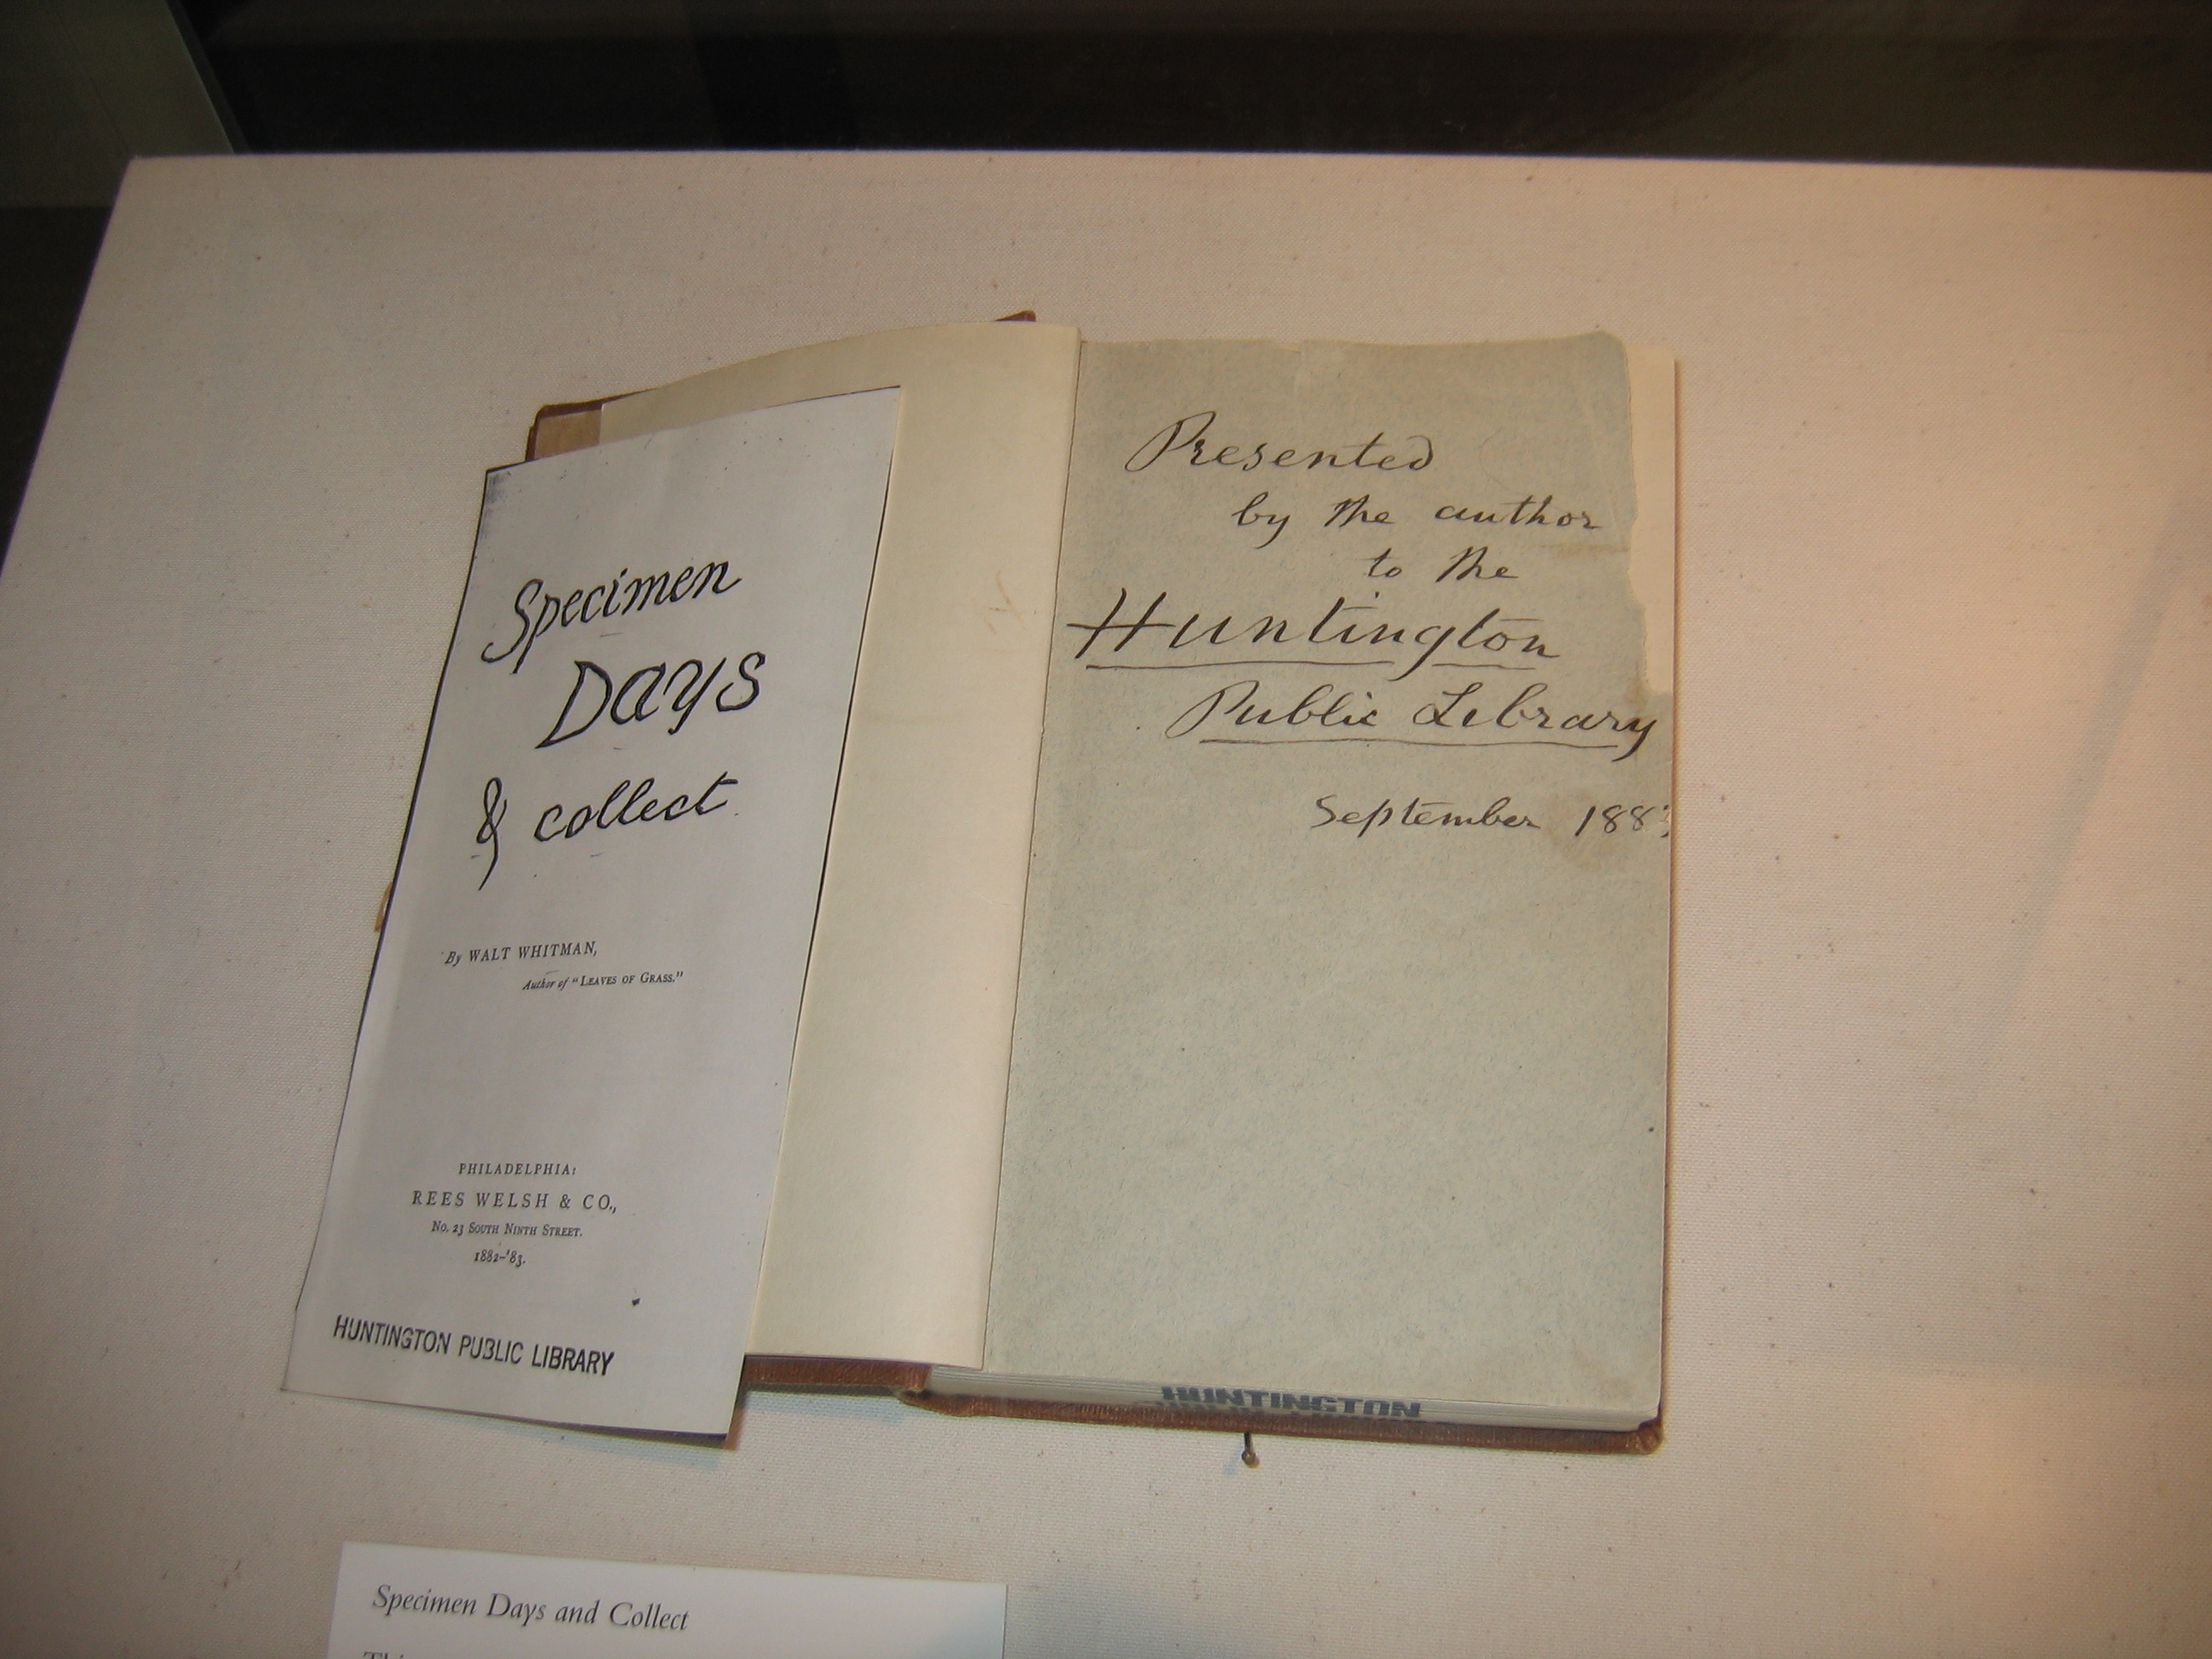 Specimen
Days
& collect
By WALT WHITMAN,
Author of "LEAVES OF GRASS."
PHILADELPHIA:
REES WELSH & CO.,
No. 23 SOUTH NINTH STREET.
1882-'83.
HUNTINGTON PUBLIC LIBRARY
Presented
by the author
to the
Huntington
Public Library
September 1883
HUNTINGTON
Specimen Days and Collect